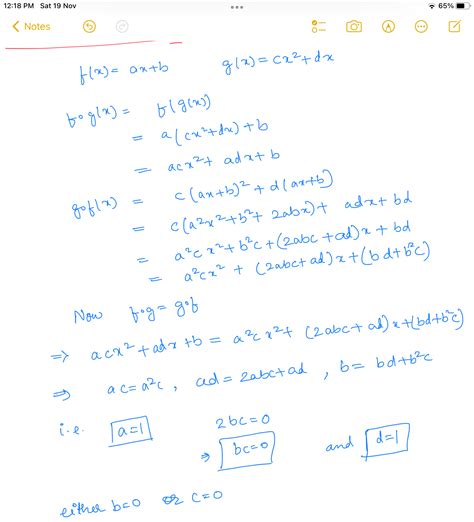 12:18 PM Sat 19 Nov ... 65%
< Notes
f(x) = ax+b g(x) = cx²+dx
fog(x) = f(g(x))
= a(cx²+dx)+b
= acx²+adx+b
gof(x) = c(ax+b)²+d(ax+b)
= c(a²x²+b²+2abx)+ adx+bd
= a²cx²+b²c+(2abc+ad)x+bd
= a²cx² + (2abc+ad)x+(bd+b²c)
Now fog = gof
⇒ acx²+adx+b = a²cx²+ (2abc+ad)x+(bd+b²c)
⇒ ac=a²c, ad=2abc+ad, b= bd+b²c
i.e. a=1 2bc=0
⇒ bc=0 and d=1
either b=0 or c=0